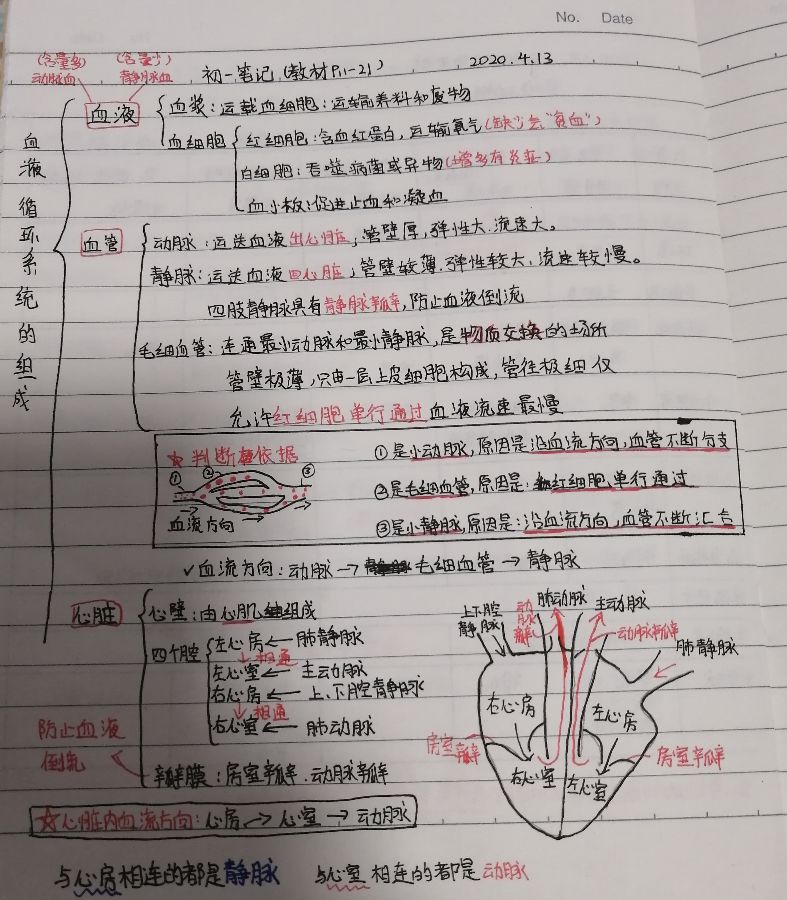 No. Date
(含量多) (含量少)
动脉血 静脉血
初一笔记(教材P11-21) 2020.4.13
血液循环系统的组成
血液
血浆:运载血细胞;运输养料和废物
血细胞
红细胞:含血红蛋白,运输氧气(缺少会"贫血")
白细胞:吞噬病菌或异物(增多有炎症)
血小板:促进止血和凝血
血管
动脉:运送血液出心脏,管壁厚,弹性大.流速大。
静脉:运送血液回心脏,管壁较薄.弹性较大.流速较慢。
四肢静脉具有静脉瓣,防止血液倒流
毛细血管:连通最小动脉和最小静脉,是物质交换的场所
管壁极薄,只由一层上皮细胞构成,管径极细仅
允许红细胞单行通过血液流速最慢
☆判断依据
① ② ③
血流方向
①是小动脉,原因是沿血流方向,血管不断分支
②是毛细血管,原因是:红细胞单行通过
③是小静脉,原因是:沿血流方向,血管不断汇合
✓血流方向:动脉→毛细血管→静脉
心脏
心壁:由心肌组成
四个腔
左心房←肺静脉
↓相通
左心室←主动脉
右心房←上、下腔静脉
↓相通
右心室←肺动脉
瓣膜:房室瓣.动脉瓣
防止血液
倒流
上下腔
静脉
动脉瓣
肺动脉
主动脉
动脉瓣
肺静脉
右心房
左心房
房室瓣
房室瓣
右心室
左心室
☆心脏内血流方向:心房→心室→动脉
与心房相连的都是静脉 与心室相连的都是动脉